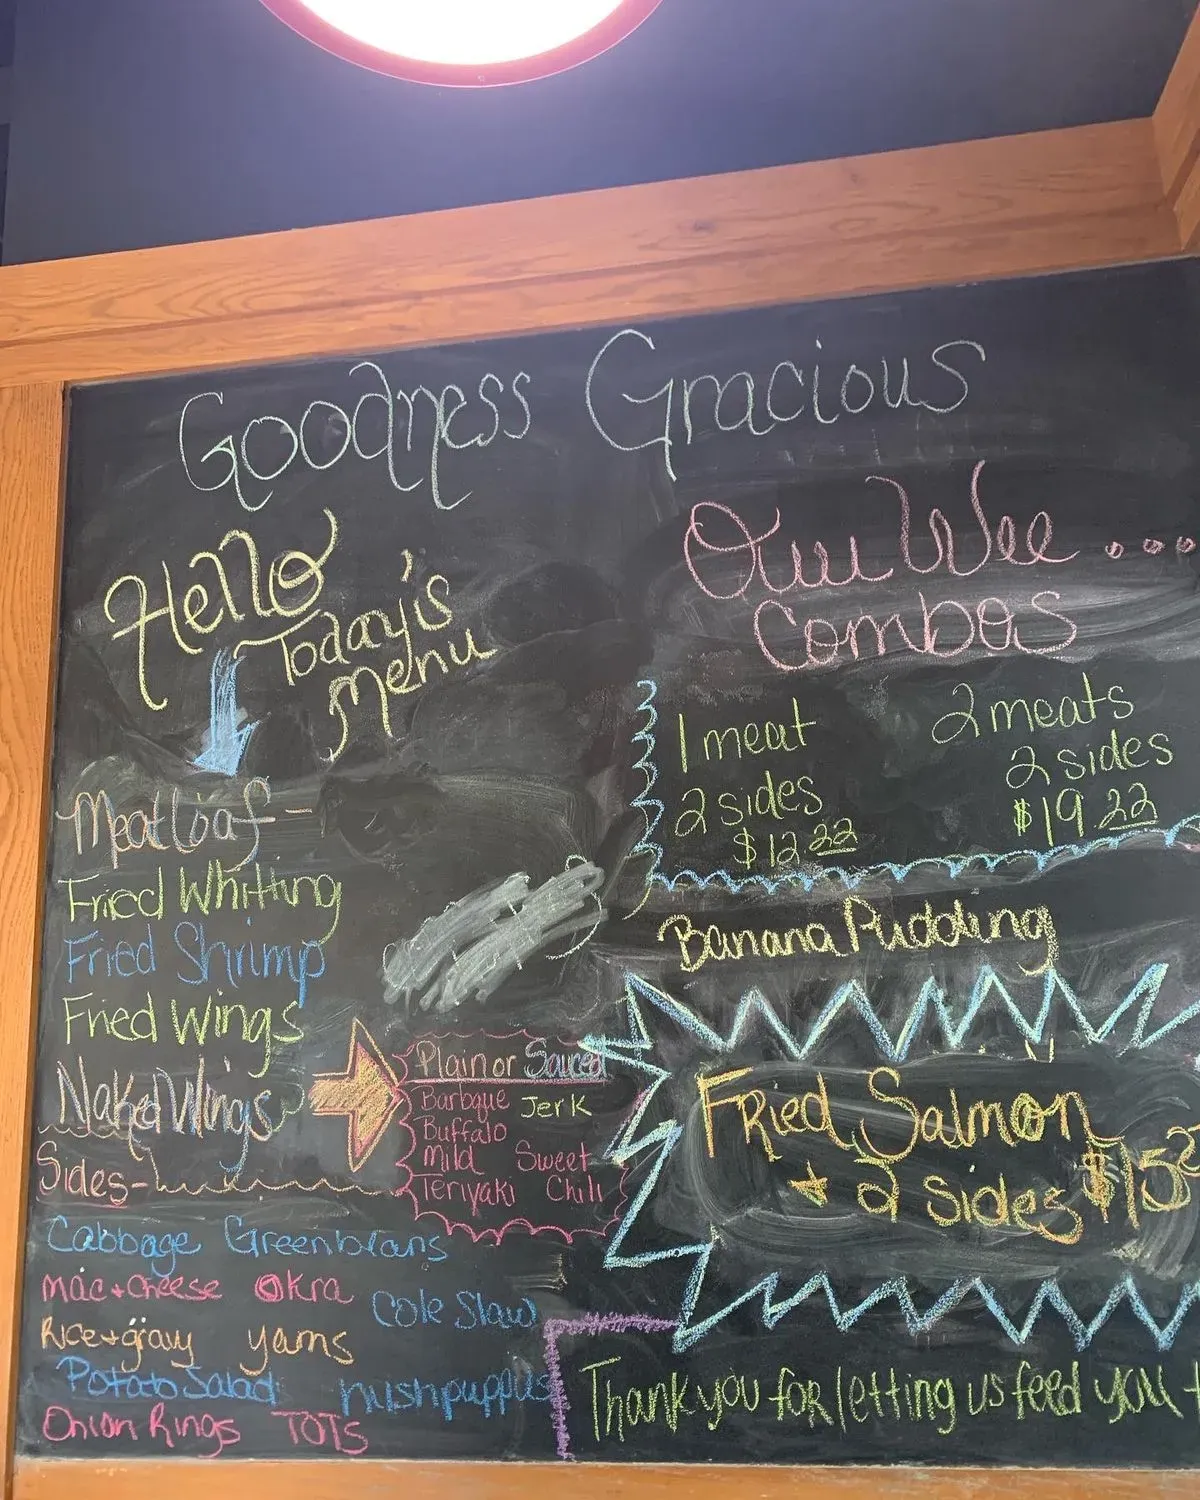 Goodness Gracious
Hello
Today's
Menu
Meatloaf -
Fried Whitting
Fried Shrimp
Fried Wings
Naked Wings
Plain or Sauced
Barbque Jerk
Buffalo
Mild Sweet
Teriyaki Chili
Sides -
Cabbage Greenbeans
Mac + Cheese Okra
Cole Slaw
Rice + gravy yams
Potato Salad hushpuppies
Onion Rings TOTs
Ouu Wee ....
Combos
1 meat
2 sides
$12.22
2 meats
2 sides
$19.22
Banana Pudding
Fried Salmon
+ 2 sides
Thank you for letting us feed you